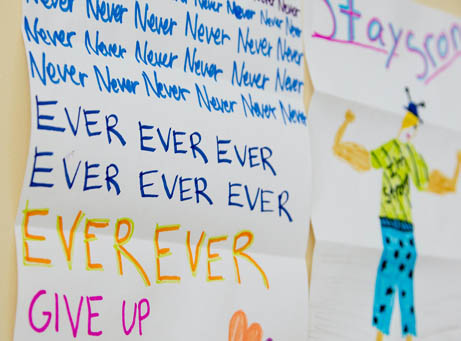 Never Never Never Never Never Never
Never Never Never Never Never Never
Never Never Never Never Never Never
Never Never Never Never Never Never
EVER EVER EVER
EVER EVER EVER
EVER EVER EVER
GIVE UP
Staysron